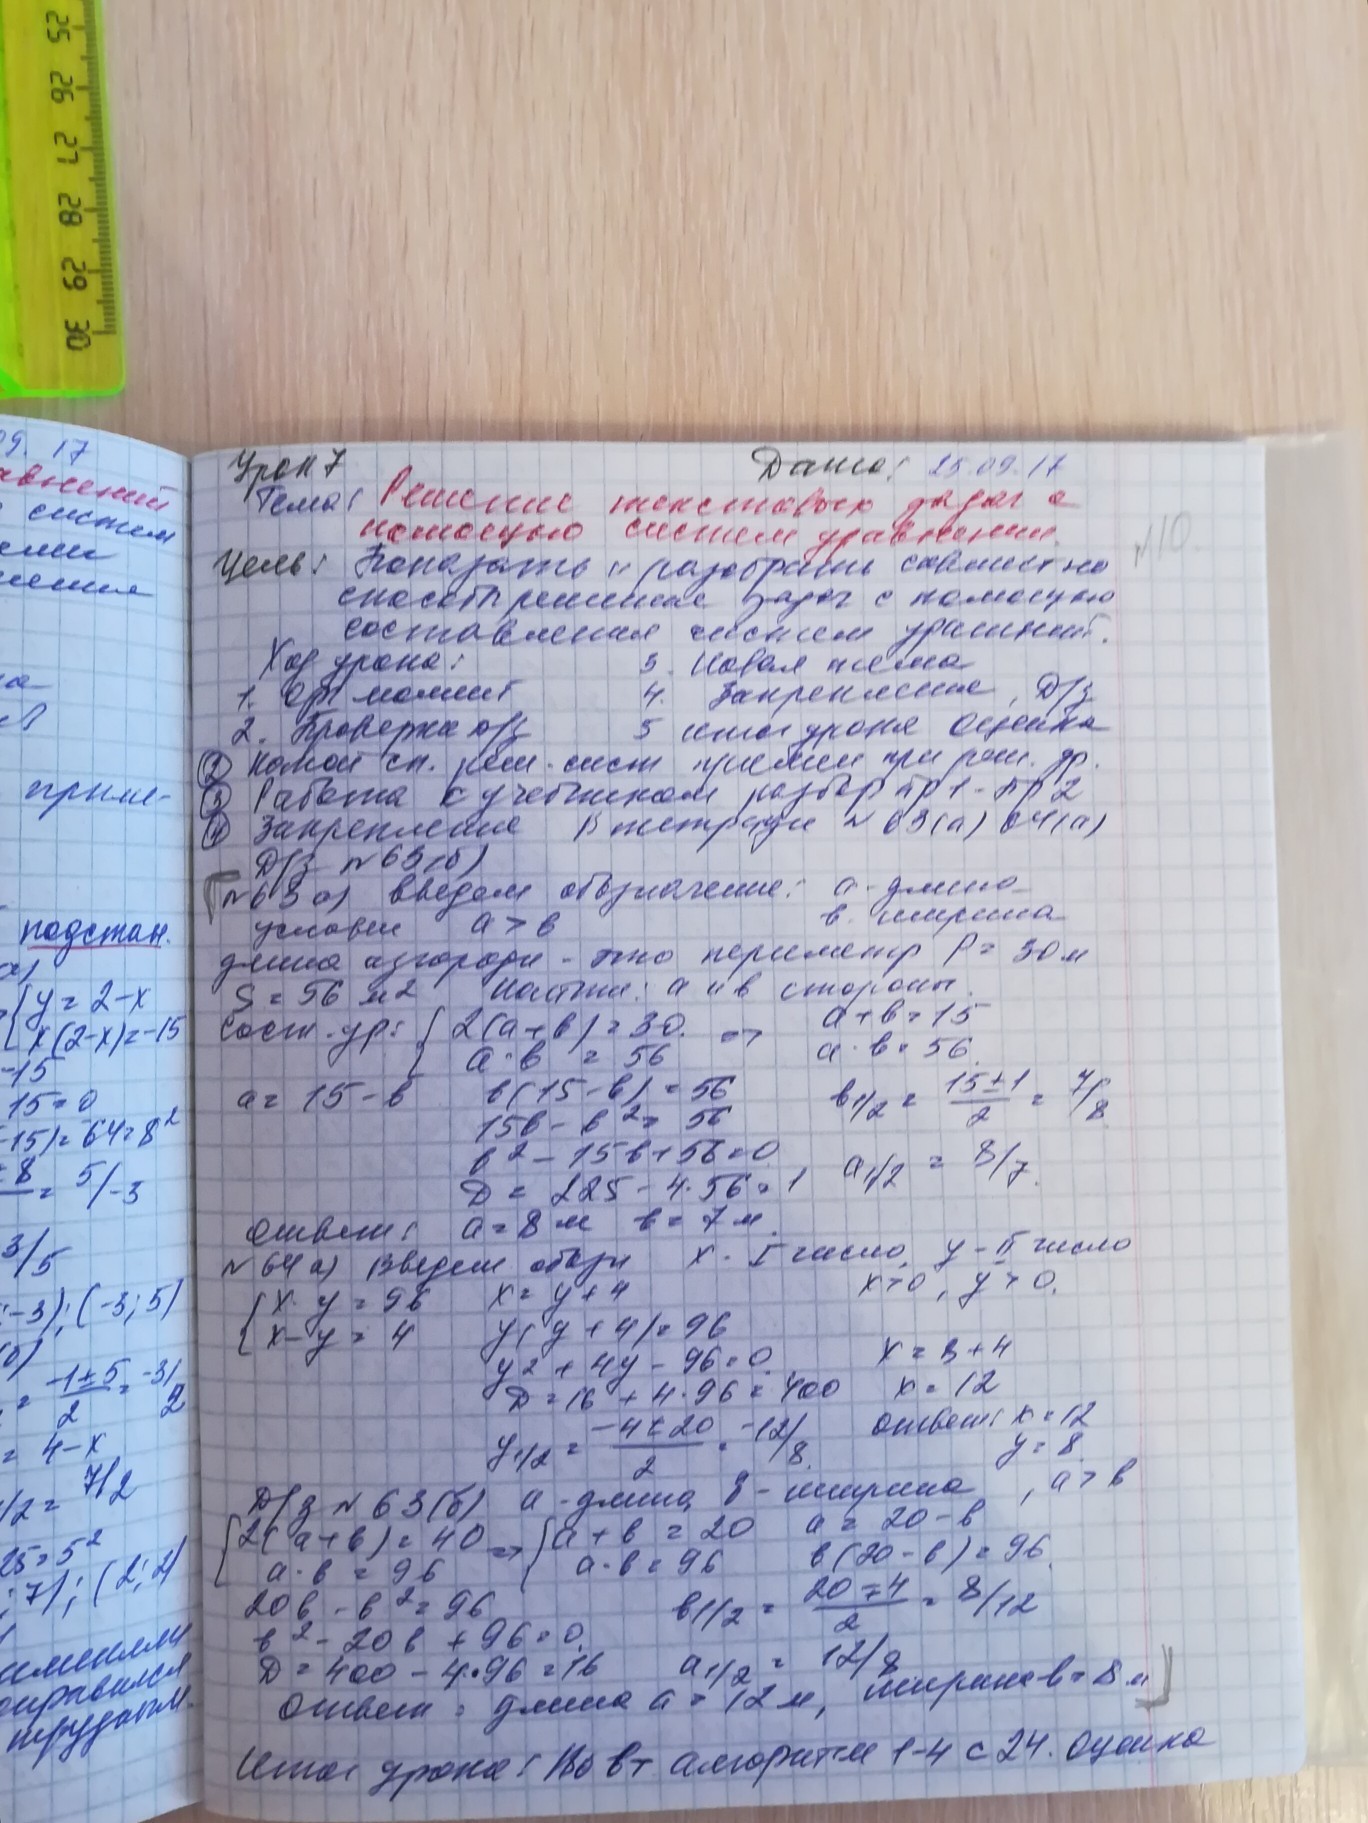 25
26
27
28
29
30
09.17
авнений
систем
подстан.
y = 2-x
x(2-x)=-15
-15
15=0
-15)=64=8²
±8 = 5/-3
3/5
;-3); (-3; 5)
= -1±5/2 = -3/2
= 4-x
1/2 = 7/2
25=5²
; 7); (2; 2)
Урок 7 Дата: 25.09.17
Тема: Решение текстовых задач с
помощью систем уравнений.
№10.
Цель: Показать и разобрать совместно
способ решение задач с помощью
составления систем уравнений.
Ход урока: 3. Новая тема
1. Орг момент 4. Закрепление, Д/з
2. Проверка д/з 5 итог урока Оценка
② Какой сп. реш. сист прием при реш. др.
③ Работа с учебником разбор пр1 - пр2
④ Закрепление В тетради №63(а) 64(а)
Д/з №63(б)
№63 а) введем обозначение: а - длина
условие a > в в - ширина
длина изгороди - это периметр P = 30 м
S = 56 м² Найти: а и в стороны.
Сост. ур: { 2(а+в) = 30. => а+в = 15
а·в = 56 а·в = 56
а = 15 - в в(15-в) = 56 в1/2 = 15±1/2 = 7/8
15в - в² = 56
в² - 15в + 56 = 0 а1/2 = 8/7.
D = 225 - 4·56 = 1
Ответ: а = 8 м в = 7 м.
№64 а) Введем обозн x - I число, y - II число
{ x·y = 96 x = y+4 x>0, y>0.
x - y = 4 y(y+4) = 96
y² + 4y - 96 = 0 x = 8+4
D = 16 + 4·96 = 400 x = 12
y1/2 = -4±20/2 = -12/8. Ответ: x = 12
y = 8
Д/з №63(б) а - длина, в - ширина, а > в
{ 2(а+в) = 40 => { а+в = 20 а = 20 - в
а·в = 96 а·в = 96 в(20-в) = 96
20в - в² = 96 в1/2 = 20∓4/2 = 8/12
в² - 20в + 96 = 0.
D = 400 - 4·96 = 16 а1/2 = 12/8
Ответ: длина а = 12 м, ширина в = 8 м
Итог урока: алгоритм 1-4 с 24. Оценка